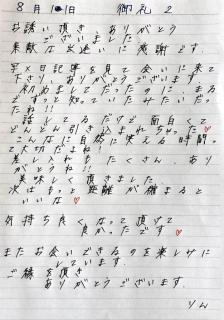 8月1日 御礼 2
お誘い頂き ありがとう
ございました
素敵な出逢いに感謝です。
写メ日記等を見て会いに来て
下さり、ありがとうございます
初めましてだったのに、まるで
ずっと知っていたみたいだった
話してるだけで面白くて
どんどん引き込まれちゃった♡
こんなに自然に笑える時間って
大切だよね
差し入れも たくさん、あり
がとうれ!!
美味しく頂きました
次はもっと距離が縮まると
いいな♡
気持ち良くなって頂けて
良かったです♡
またお会いできるのを楽しみに
しています。
ご縁を頂き
ありがとうございます。
りん